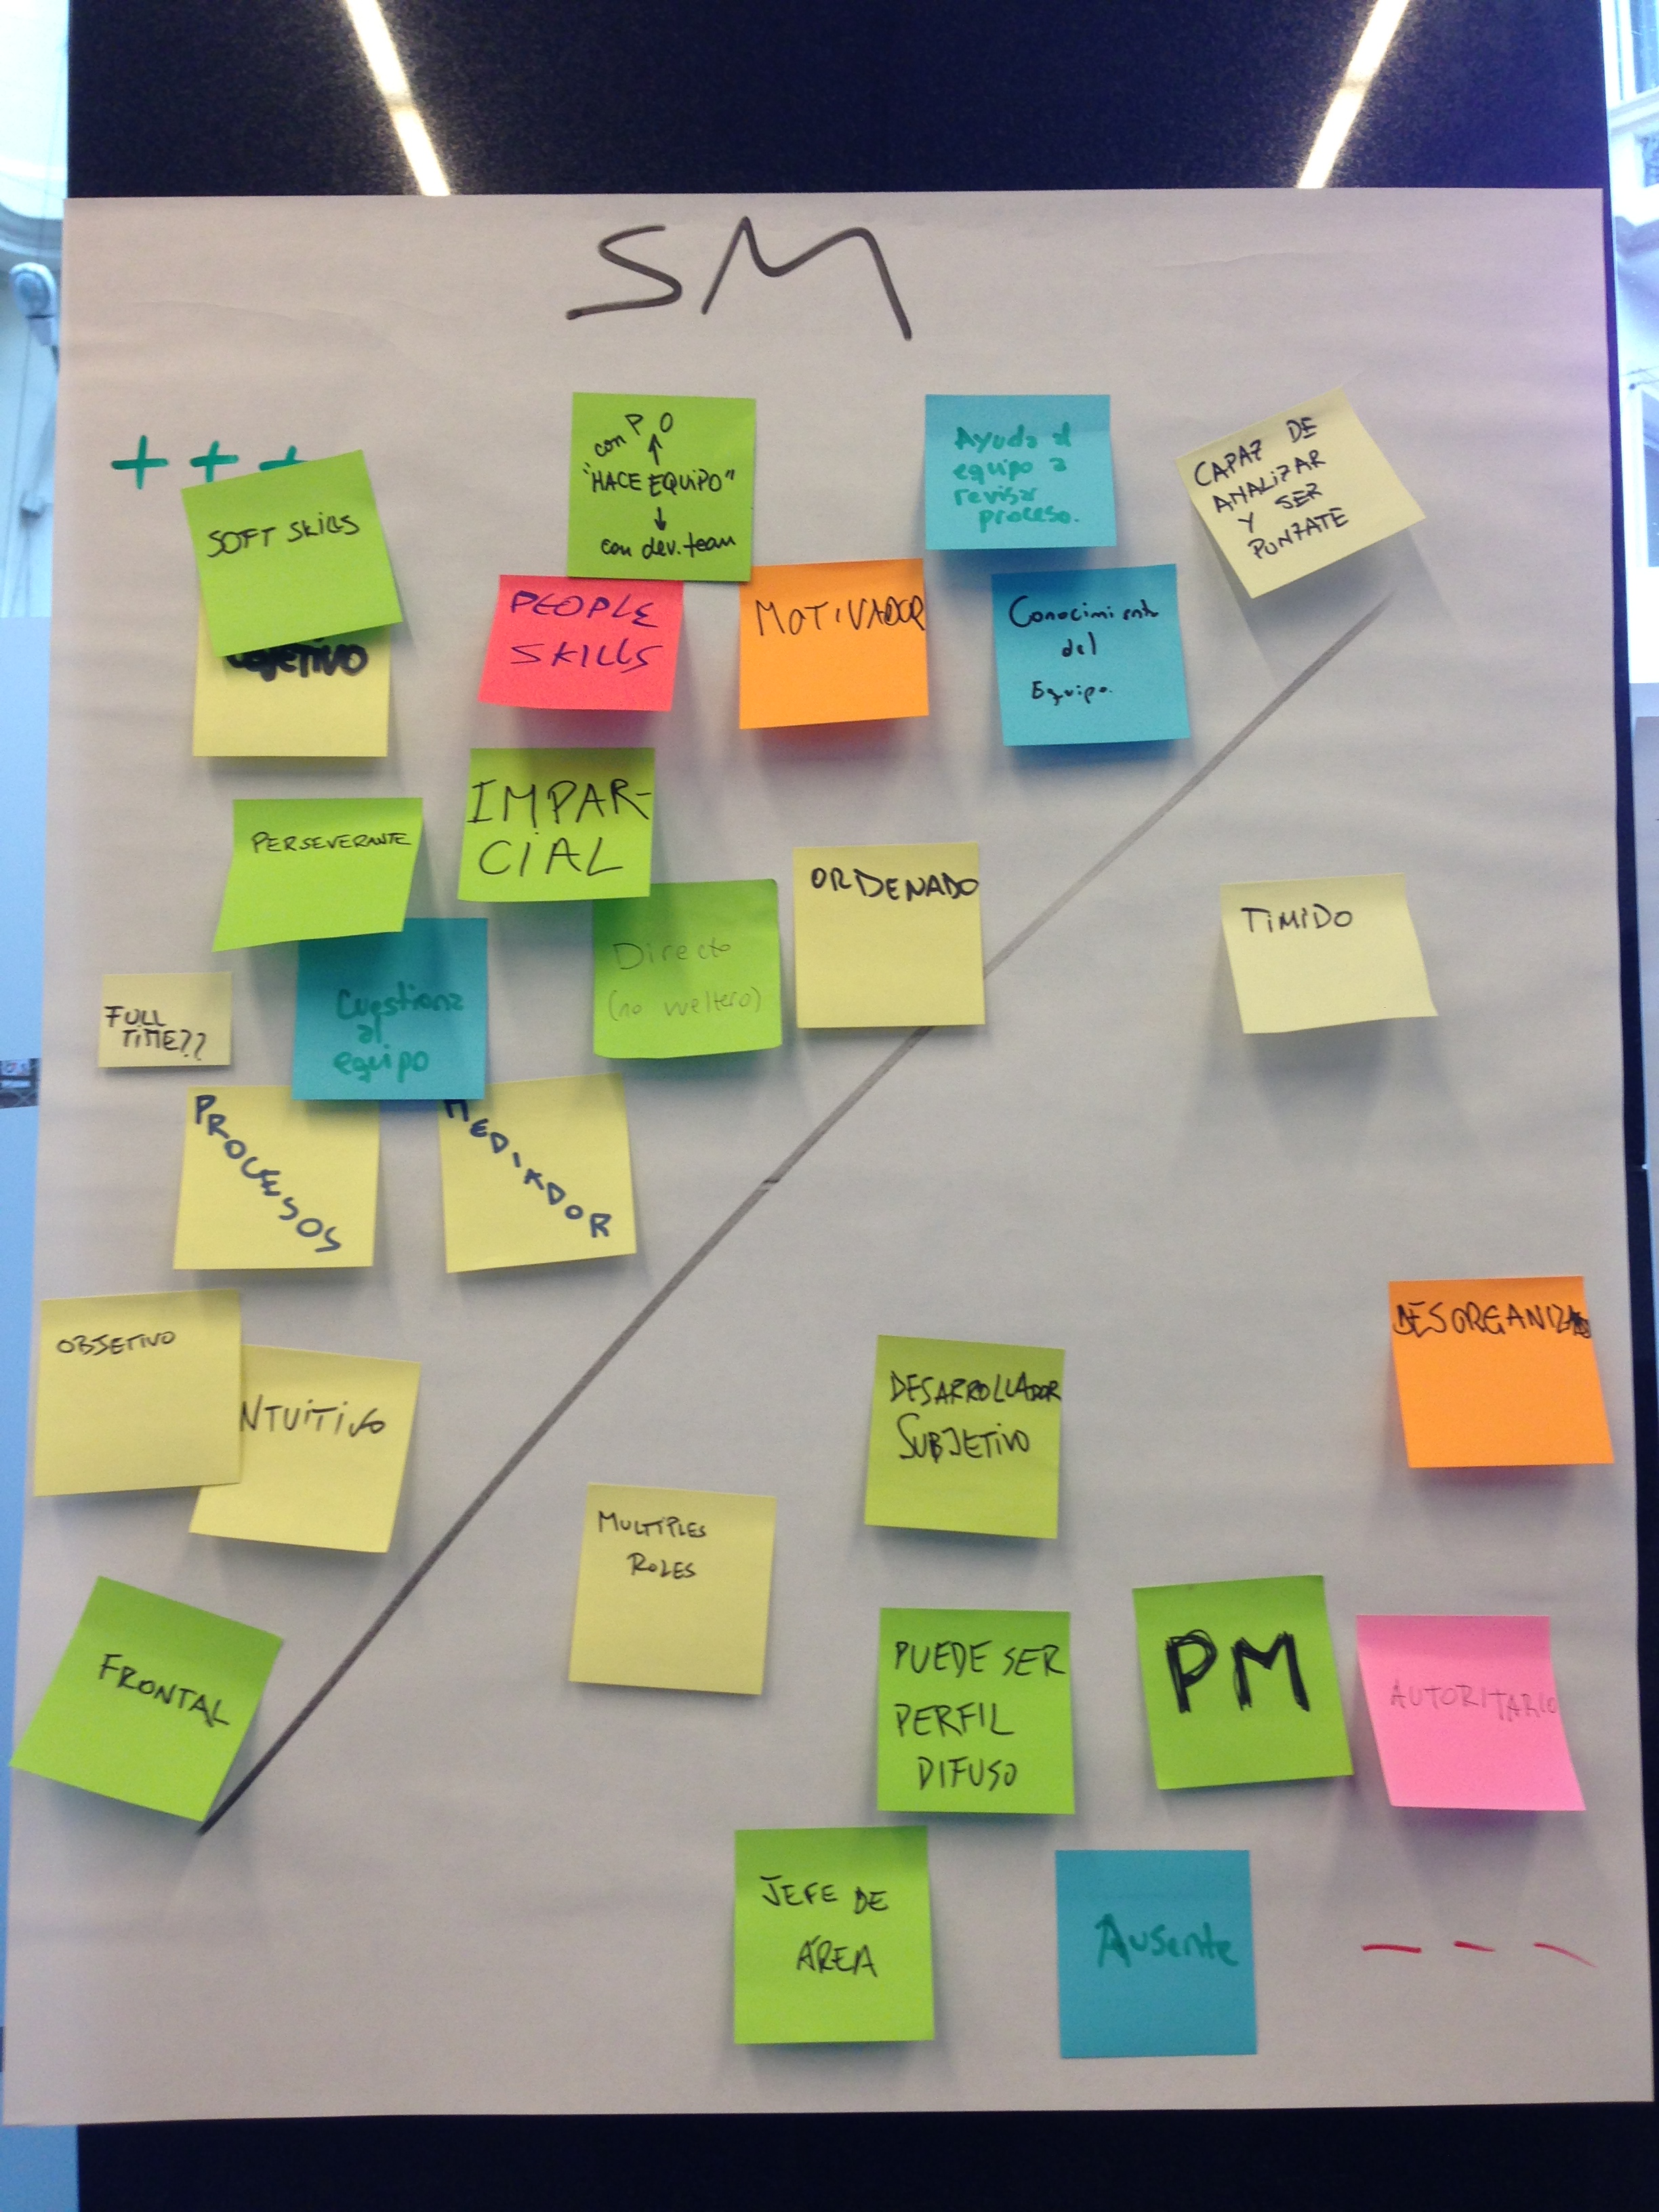 SM
+ + +
SOFT SKILLS
con P O
"HACE EQUIPO"
con dev. team
Ayuda al
equipo a
revisar
proceso.
CAPAZ DE
ANALIZAR
Y SER
PUNZATE
PEOPLE
SKILLS
MOTIVADOR
Conocimiento
del
Equipo.
PERSEVERANTE
IMPAR-
CIAL
Directo
(no vueltero)
ORDENADO
TIMIDO
FULL
TIME??
Cuestiona
al
equipo
PROCESOS
MEDIADOR
OBJETIVO
NTUITIVO
FRONTAL
DESORGANIZADO
DESARROLLADOR
SUBJETIVO
MULTIPLES
ROLES
PUEDE SER
PERFIL
DIFUSO
PM
AUTORITARIO
JEFE DE
ÁREA
Ausente
- - -